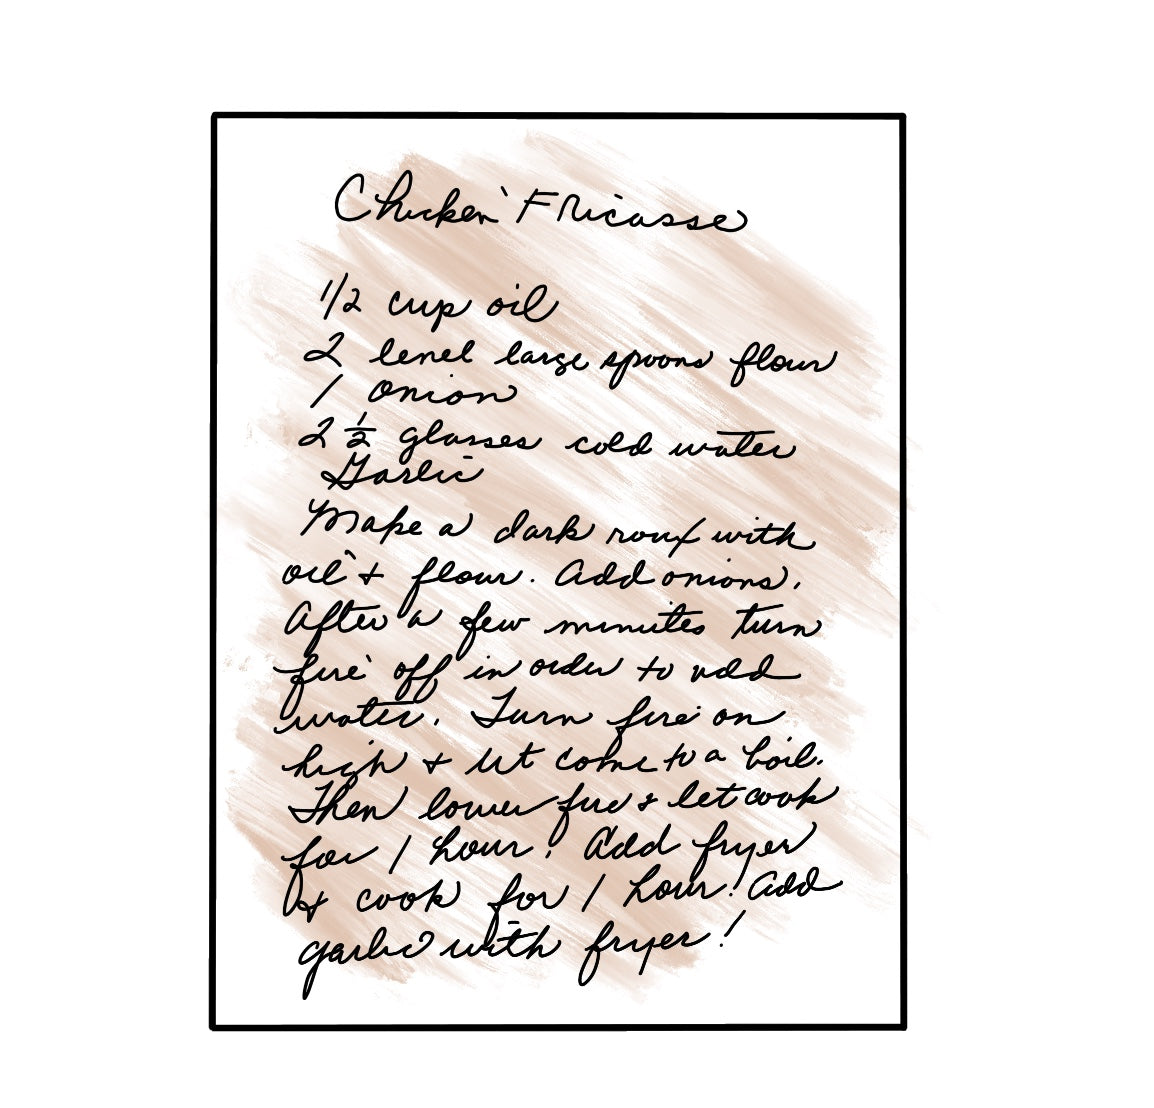 Chicken Fricasse
1/2 cup oil
2 level large spoons flour
1 onion
2 1/2 glasses cold water
Garlic
Make a dark roux with
oil & flour. Add onions.
After a few minutes turn
fire off in order to add
water. Turn fire on
high & let come to a boil.
Then lower fire & let cook
for 1 hour! Add fryer
& cook for 1 hour! Add
garlic with fryer!